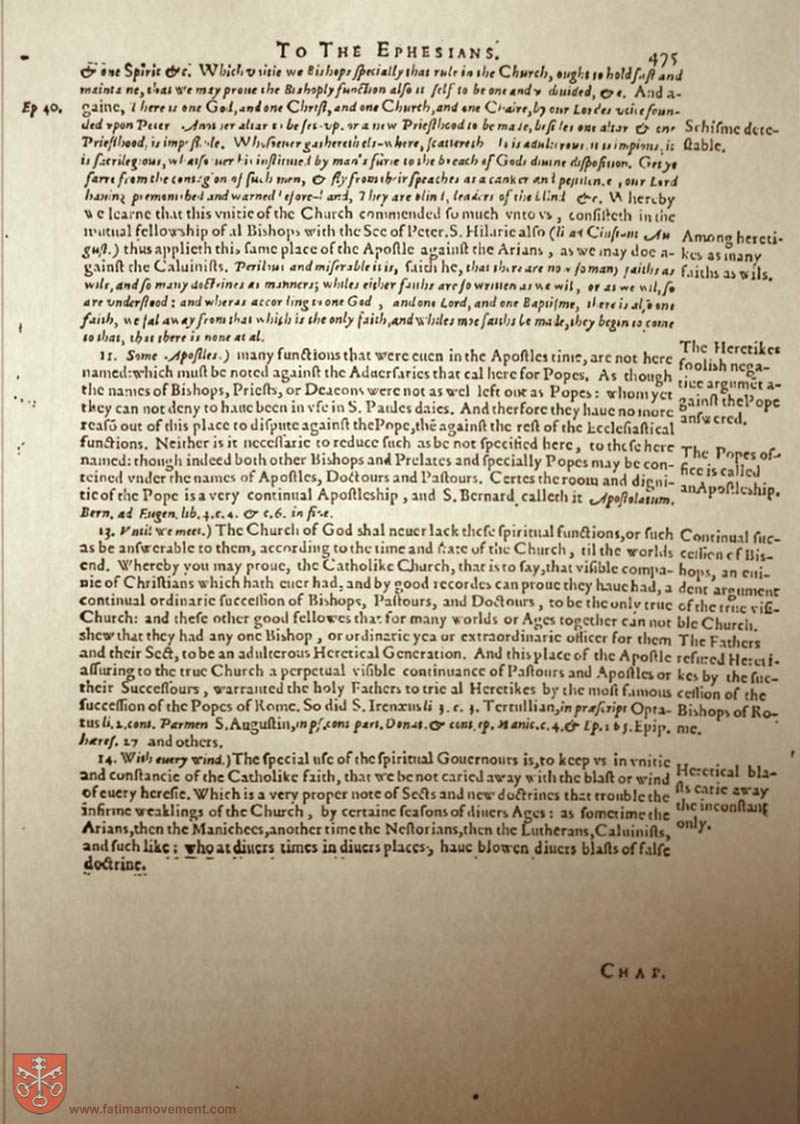 TO THE EPHESIANS.
475
& one Spirit &c. Which vnitie we Bishops specially that rule in the Church, ought to hold fast and
maintaine, that we may proue the Bishoply function also it self to be one and vndiuided, &c. And a-
Ep 40.
gaine, There is one God, and one Christ, and one Church, and one Chaire, by our Lordes voice foun-
ded vpon Peter Another altar to be set-vp. or a new Priesthood to be made, besides one altar & one
Priesthood, is impossible. Whosoeuer gathereth els-where, scattereth It is adulterous. it is impious, it
Schisme dete-
stable.
is sacrilegious, whatsoeuer is instituted by man's furie to the breach of Gods diuine disposition. Get ye
farre from the contagion of such men, & fly from their speaches as a canker and pestilence, our Lord
hauing premonished and warned before-hand, They are blind, leaders of the blind &c. Whereby
we learne that this vnitie of the Church commended so much vnto vs, consisteth in the
mutual fellowship of al Bishops with the See of Peter. S. Hilarie also (li ad Constant Au
gust.) thus applieth this same place of the Apostle against the Arians, as we may doe a-
gainst the Caluinists. Perilous and miserable it is, saith he, that there are now so many faiths as
Among hereti-
kes as many
faiths as wils.
wils, and so many doctrines as manners; whiles either faiths are so written as we wil, or as we wil, so
are vnderstood: and wheras according to one God, and one Lord, and one Baptisme, there is also one
faith, we fal away from that which is the only faith, and whiles moe faiths be made, they begin to come
to that, that there is none at al.
11. Some Apostles.) many functions that were euen in the Apostles time, are not here
named: which must be noted against the Aduersaries that cal here for Popes. As though
the names of Bishops, Priests, or Deacons were not as wel left out as Popes: whom yet
they can not deny to haue been in vse in S. Paules daies. And therfore they haue no more
reasō out of this place to dispute against the Pope, thē against the rest of the Ecclesiastical
The Heretikes
foolish nega-
tiue argumēt a-
gainst the Pope
answered.
functions. Neither is it necessarie to reduce such as be not specified here, to these here
named: though indeed both other Bishops and Prelates and specially Popes may be con-
teined vnder the names of Apostles, Doctours and Pastours. Certes the room and digni-
tie of the Pope is a very continual Apostleship, and S. Bernard calleth it Apostolatum.
Bern. ad Eugen. lib. 4. c. 4. & c. 6. in fine.
The Popes of-
fice is called
an Apostleship.
13. Vntil we meet.) The Church of God shal neuer lack these spiritual functions, or such
as be answerable to them, according to the time and state of the Church, til the worlds
end. Whereby you may proue, the Catholike Church, that is to say, that visible compa-
nie of Christians which hath euer had, and by good recordes can proue they haue had, a
continual ordinarie succession of Bishops, Pastours, and Doctours, to be the only true
Church: and these other good fellowes that for many worlds or Ages together can not
Continual suc-
cession of Bis-
hops, an eui-
dent argument
of the true visi-
ble Church.
shew that they had any one Bishop, or ordinarie yea or extraordinarie officer for them
and their Sect, to be an adulterous Heretical Generation. And this place of the Apostle
assuring to the true Church a perpetual visible continuance of Pastours and Apostles or
their Successours, warranted the holy Fathers to trie al Heretikes by the most famous
succession of the Popes of Rome. So did S. Irenæus li 3. c. 3. Tertullian, in præscript Opta-
tus li. 2. cont. Parmen S. Augustin, in ps. cont part. Donat. & cont. ep. Manic. c. 4. & Ep. 165. Epip.
hæres. 27 and others.
The Fathers
refuted Hereti-
kes by the suc-
cession of the
Bishops of Ro-
me.
14. With euery wind.) The special vse of the spiritual Gouernours is, to keep vs in vnitie
and constancie of the Catholike faith, that we be not caried away with the blast or wind
of euery heresie. Which is a very proper note of Sects and new doctrines that trouble the
infirme weaklings of the Church, by certaine seasons of diuers Ages: as sometime the
Arians, then the Manichees, another time the Nestorians, then the Lutherans, Caluinists,
and such like: who at diuers times in diuers places, haue blowen diuers blasts of false
doctrine.
Heretical bla-
sts carie away
the inconstant
only.
CHAP.
www.fatimamovement.com